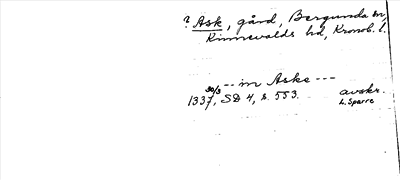 ? Ask, gård, Bergunda sn,
Kinnevalds hd, Kronob. l.
-- in Aske ---
1337 30/3, SD 4, s. 553. avskr.
L. Sparre